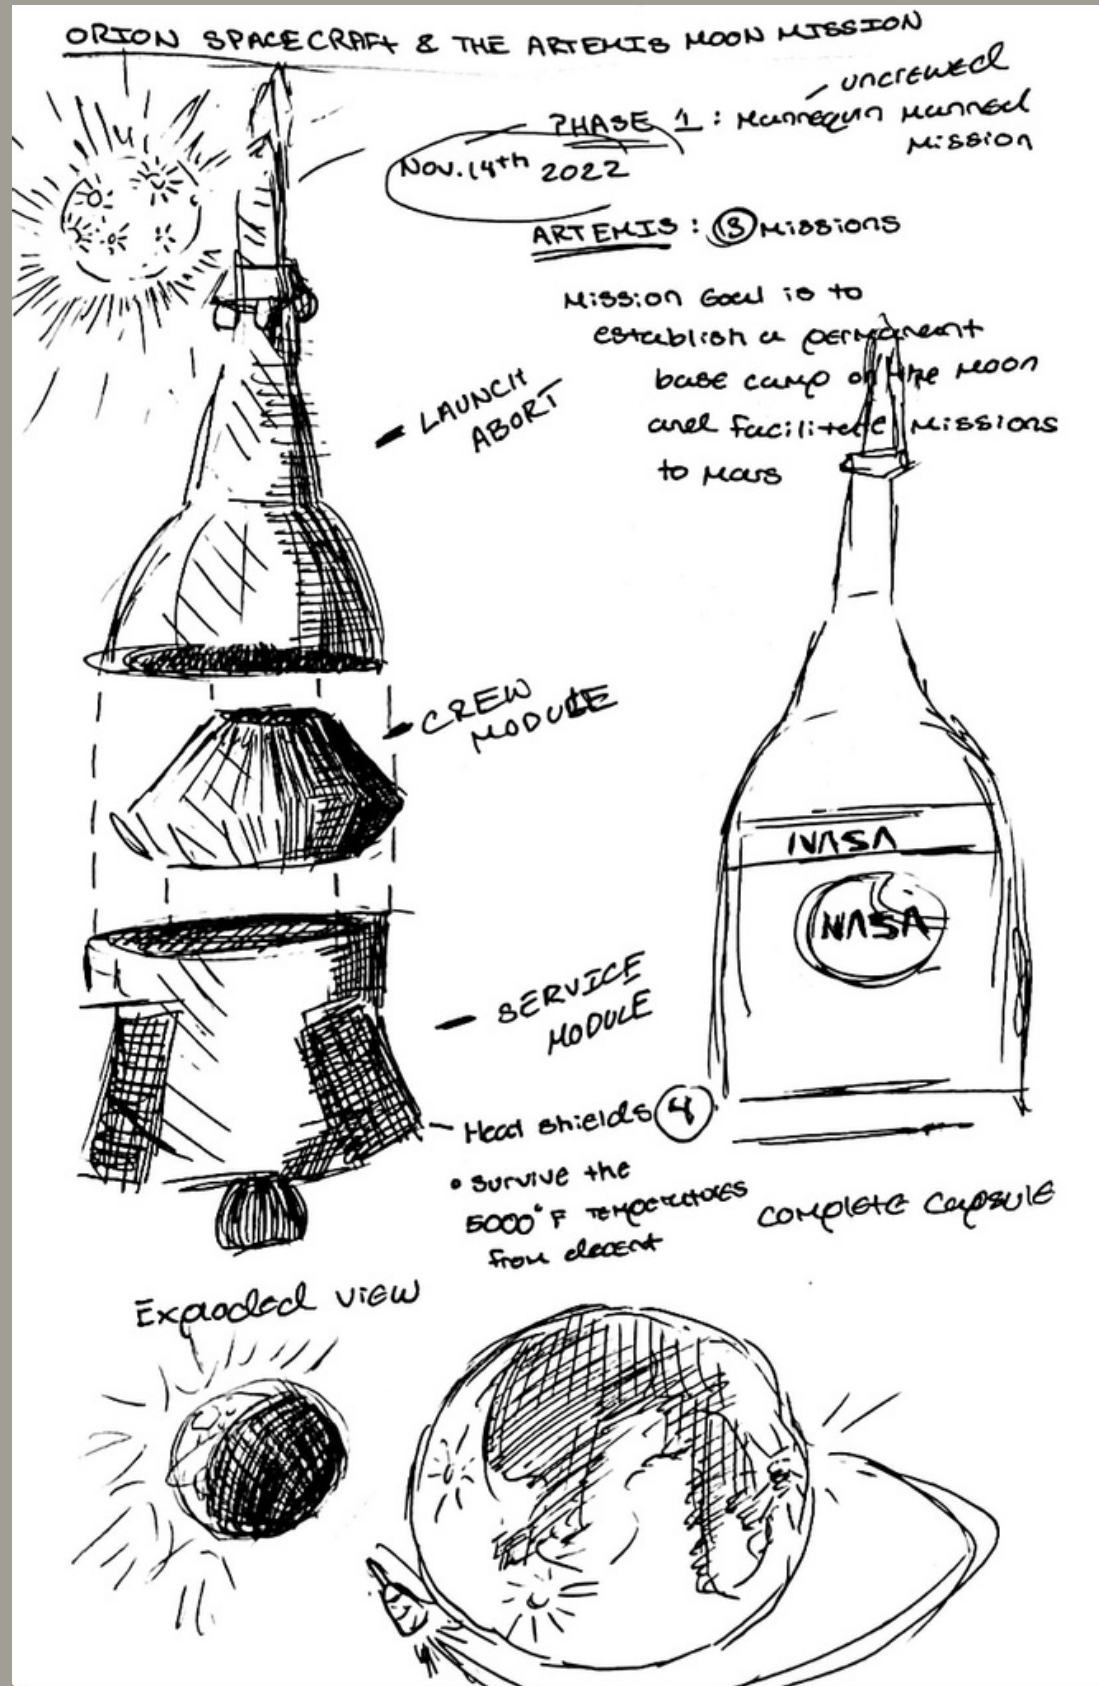 ORION SPACECRAFT & THE ARTEMIS MOON MISSION
uncrewed
PHASE 1 : Mannequin Manned
Mission
Nov. 14th 2022
ARTEMIS : 3 Missions
Mission Goal is to
establish a permanent
base camp on the Moon
and facilitate Missions
to Mars
LAUNCH
ABORT
CREW
MODULE
NASA
NASA
SERVICE
MODULE
Heat shields 4
• Survive the
5000°F TEMPERATURES
from decent
COMPLETE CAPSULE
Exploded VIEW